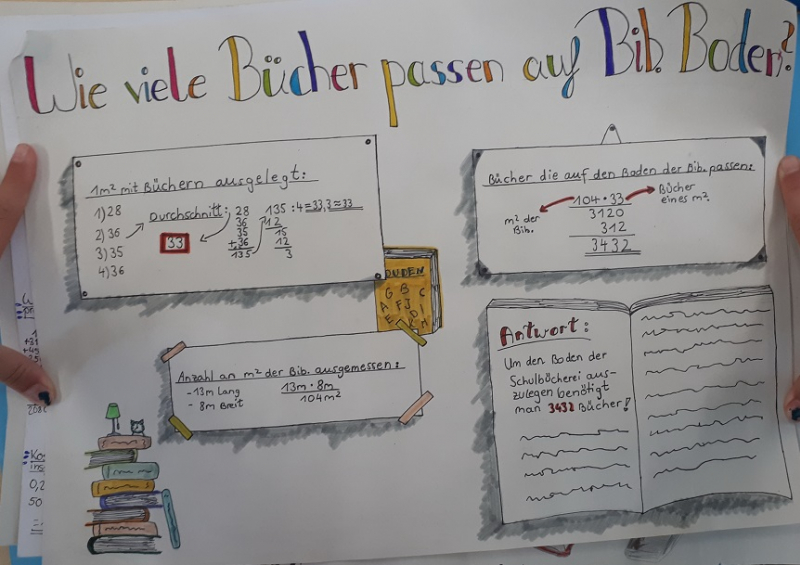 Wie viele Bücher passen auf Bib. Boden?
1m² mit Büchern ausgelegt:
1) 28
2) 36
3) 35
4) 36
Durchschnitt:
33
28
36
35
+36
135
135 : 4 = 33,3 ≈ 33
12
15
12
3
Bücher die auf den Boden der Bib. passen:
m² der
Bib.
104 · 33
3120
312
3432
Bücher
eines m².
DUDEN
Anzahl an m² der Bib. ausgemessen:
- 13m Lang
- 8m Breit
13m · 8m
104m²
Antwort:
Um den Boden der
Schulbücherei aus-
zulegen benötigt
man 3432 Bücher!